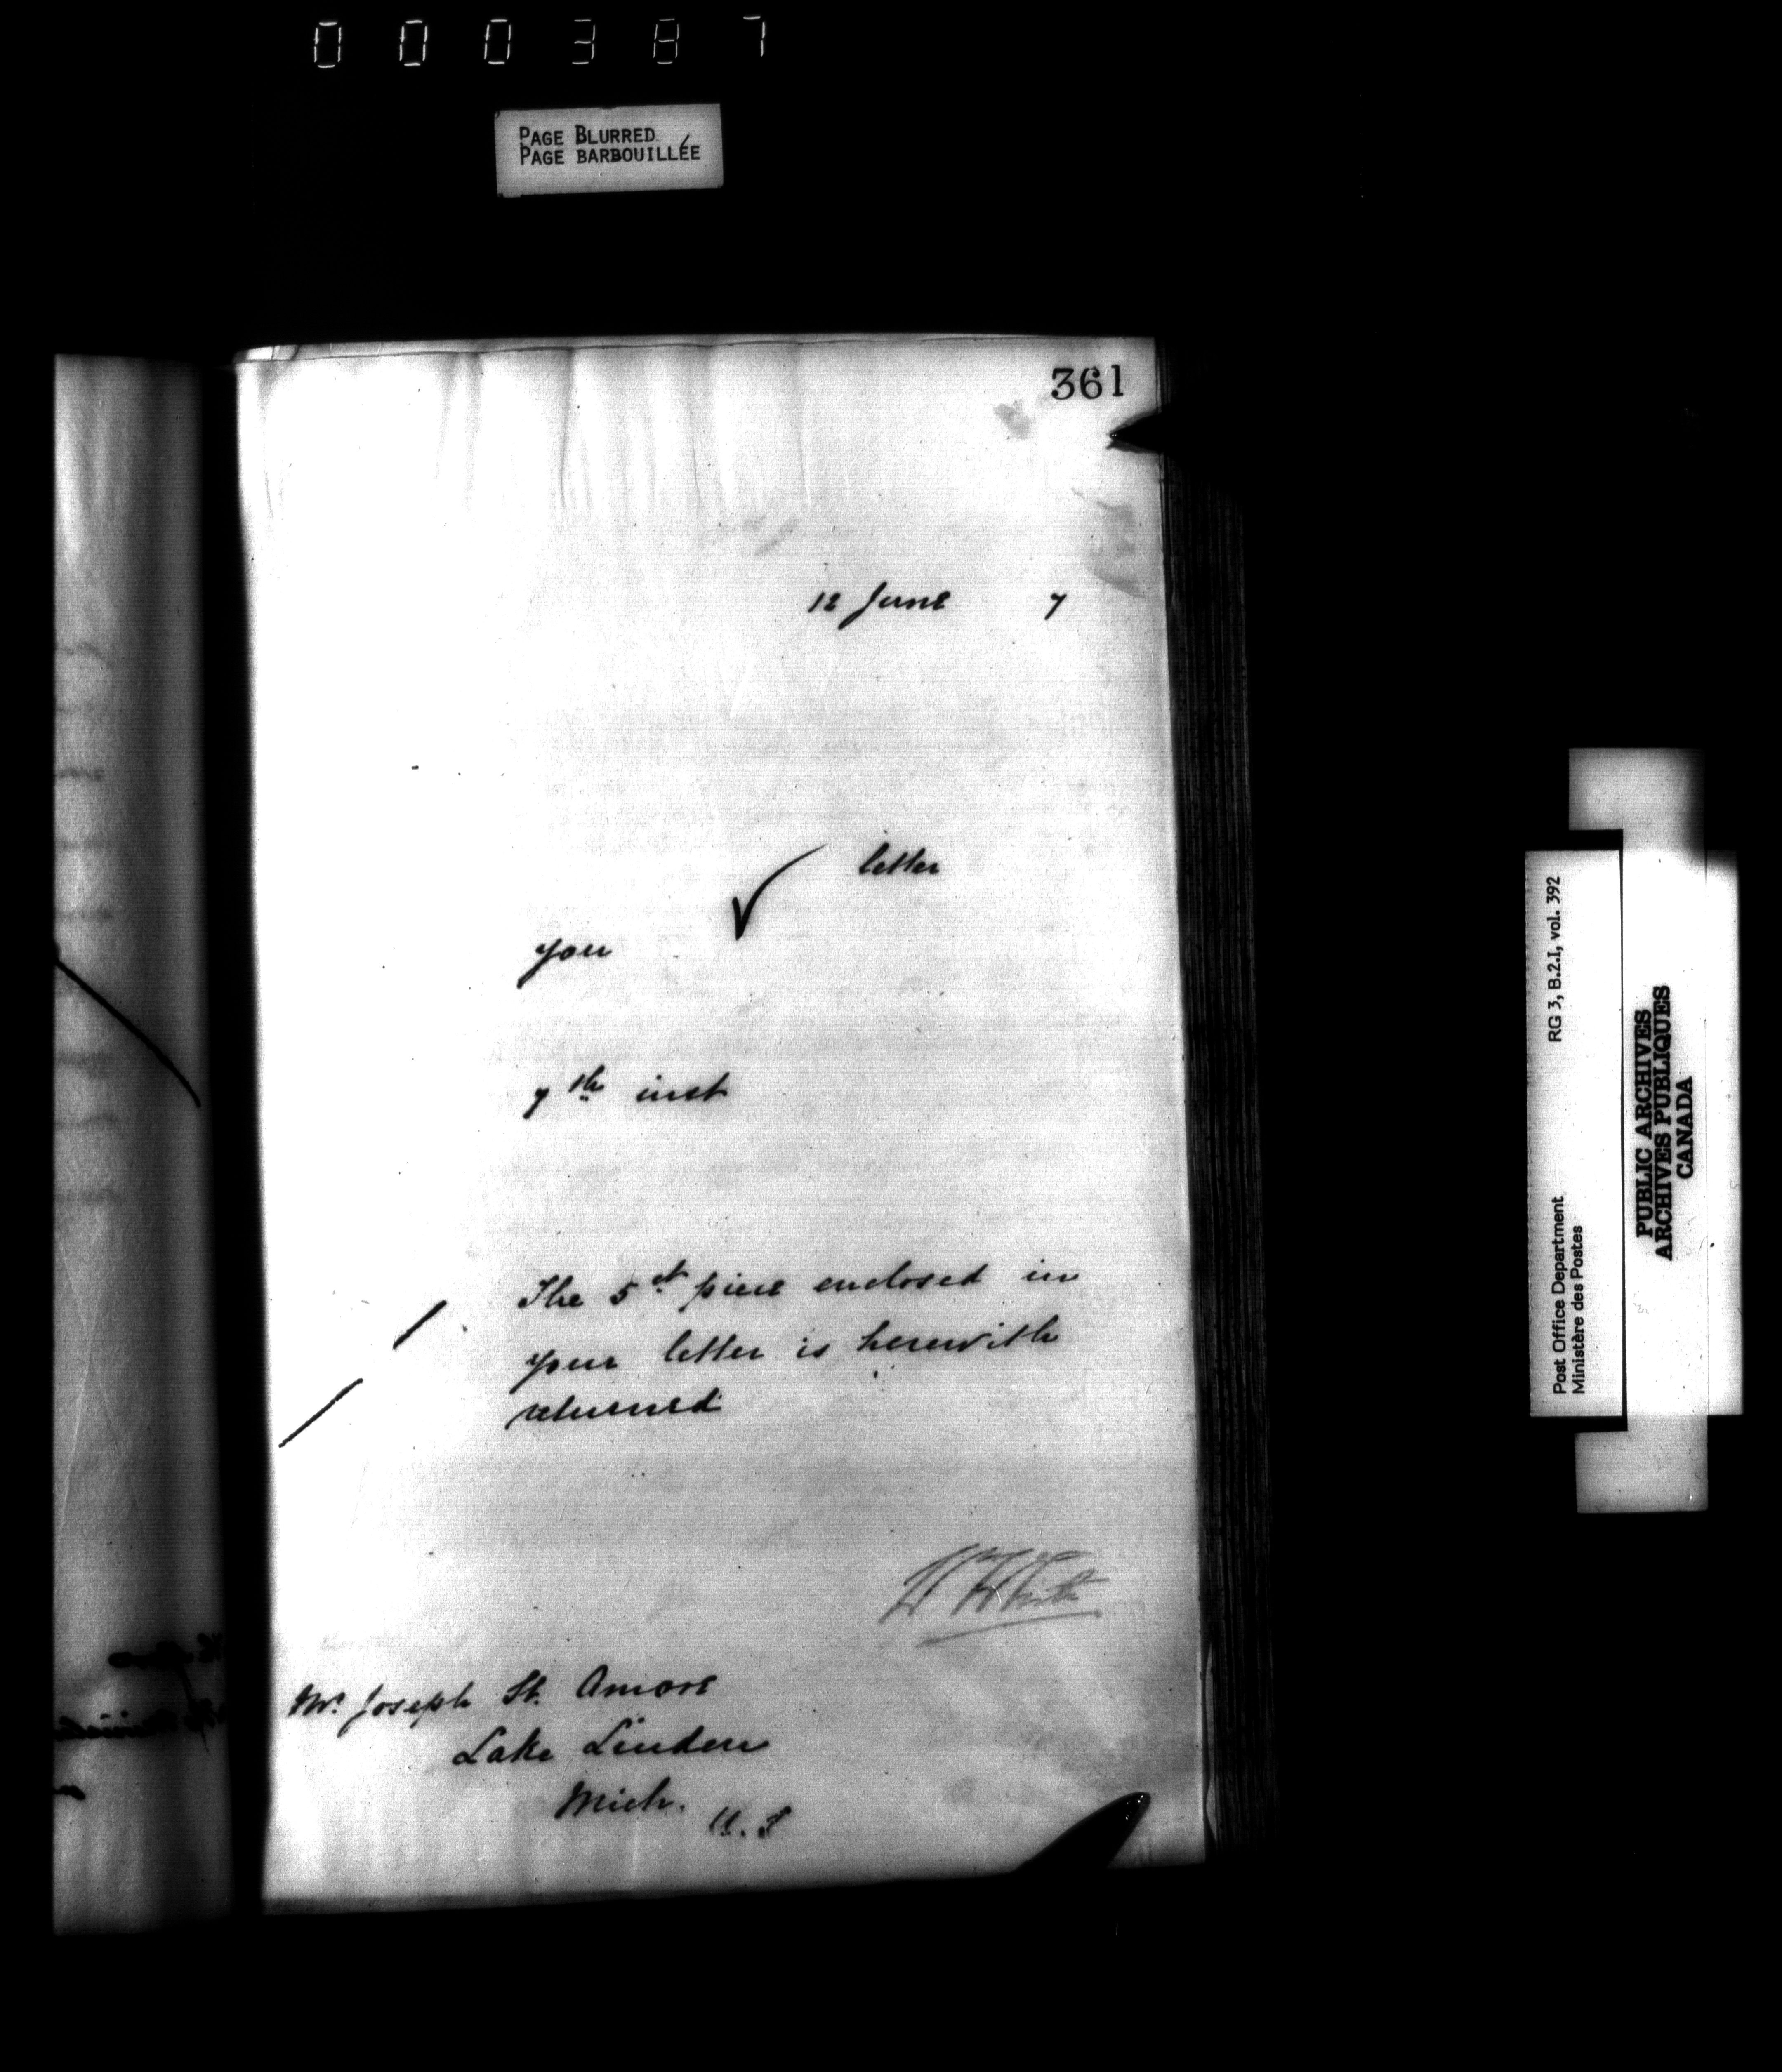 000387
PAGE BLURRED
PAGE BARBOUILLÉE
361
12 June 7
letter
you
7th inst
The 5 ct piece enclosed in
your letter is herewith
returned
Mr. Joseph St. Amore
Lake Linden
Mich. U.S
RG 3, B.2.I, vol. 392
Post Office Department
Ministère des Postes
PUBLIC ARCHIVES
ARCHIVES PUBLIQUES
CANADA